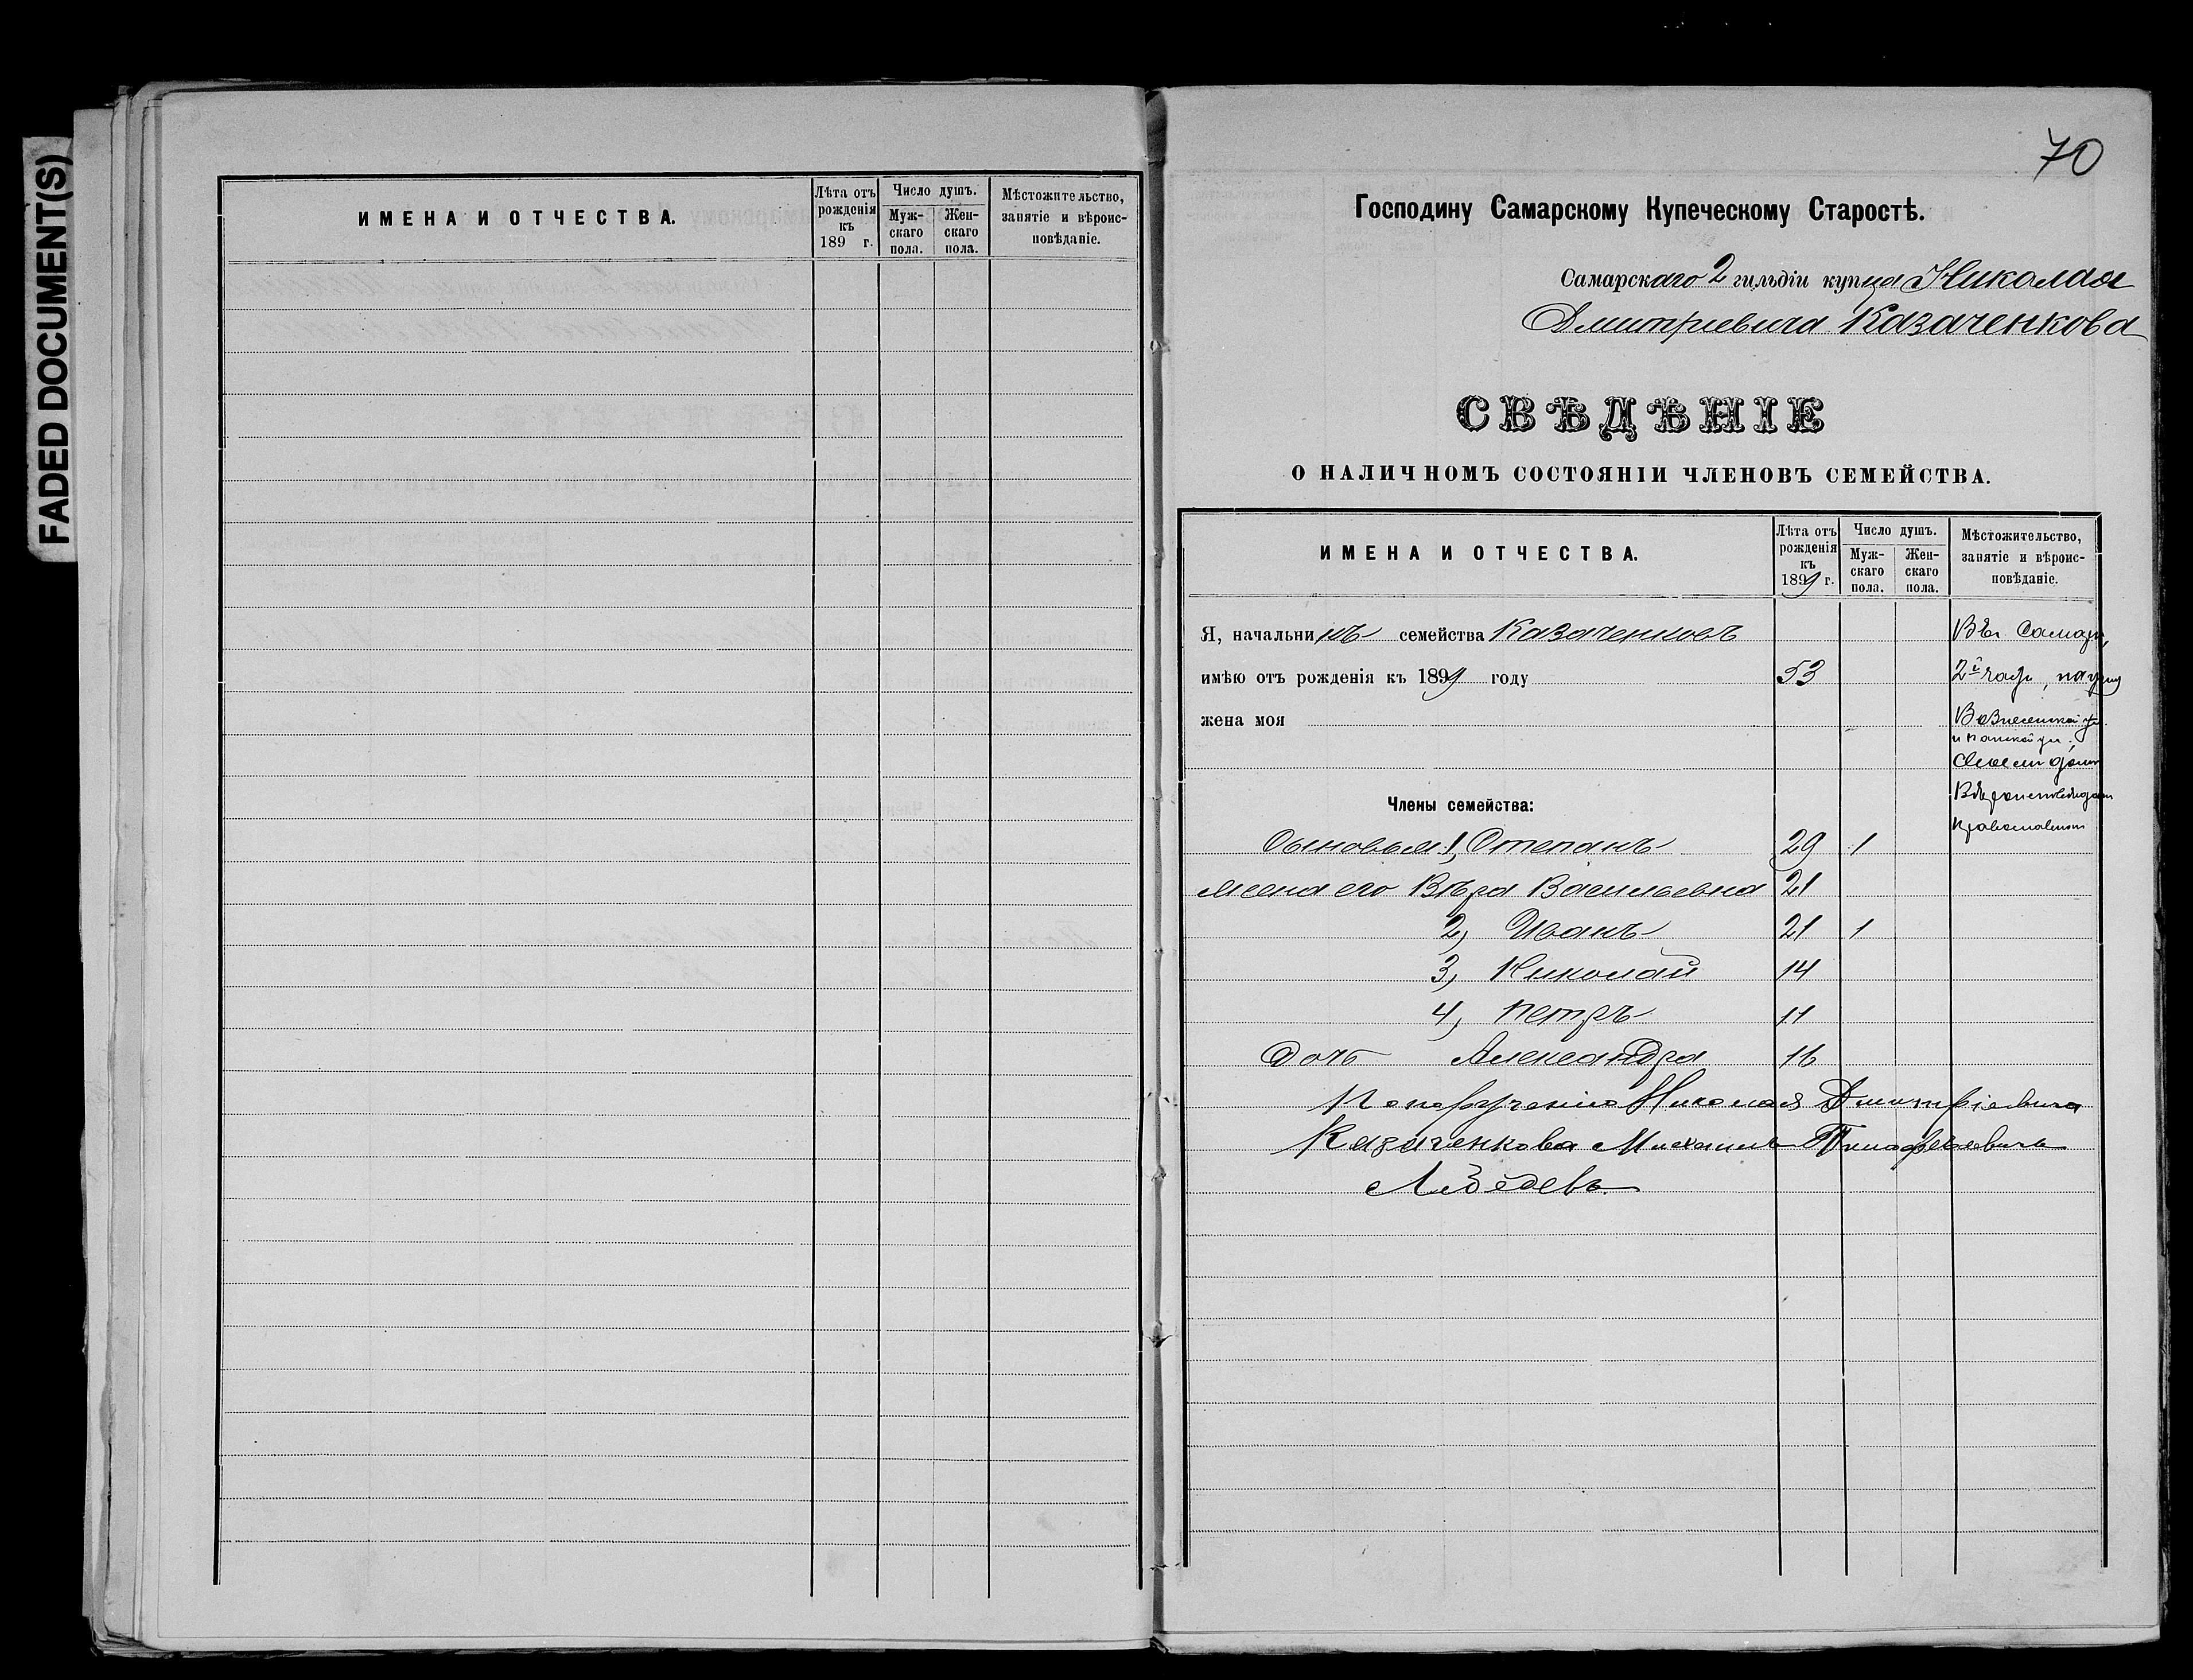 FADED DOCUMENT(S)
ИМЕНА И ОТЧЕСТВА.
Лѣта отъ рожденія къ 189 г.
Число душъ.
Мужскаго пола.
Женскаго пола.
Мѣстожительство, занятіе и вѣроисповѣданіе.
70
Господину Самарскому Купеческому Старостѣ.
Самарскаго 2 гильдіи купца Николая
Дмитриевича Казаченкова
СВѢДѢНІЕ
О НАЛИЧНОМЪ СОСТОЯНІИ ЧЛЕНОВЪ СЕМЕЙСТВА.
ИМЕНА И ОТЧЕСТВА.
Лѣта отъ рожденія къ 1899 г.
Число душъ.
Мужскаго пола.
Женскаго пола.
Мѣстожительство, занятіе и вѣроисповѣданіе.
Я, начальникъ семейства Казаченковъ
имѣю отъ рожденія къ 1899 году 53
жена моя
Въ Самарѣ,
2й част,
Вознесенской
и Панской ул.
Своем доме
Православнаго
Члены семейства:
Сыновья: 1, Степанъ 29 1
жена его Вѣра Васильевна 21
2, Иванъ 21 1
3, Николай 14
4, Петръ 11
Дочь Александра 16
По порученію Николая Дмитріевича
Казаченкова Михаилъ Тимофеевичъ
Лебедевъ